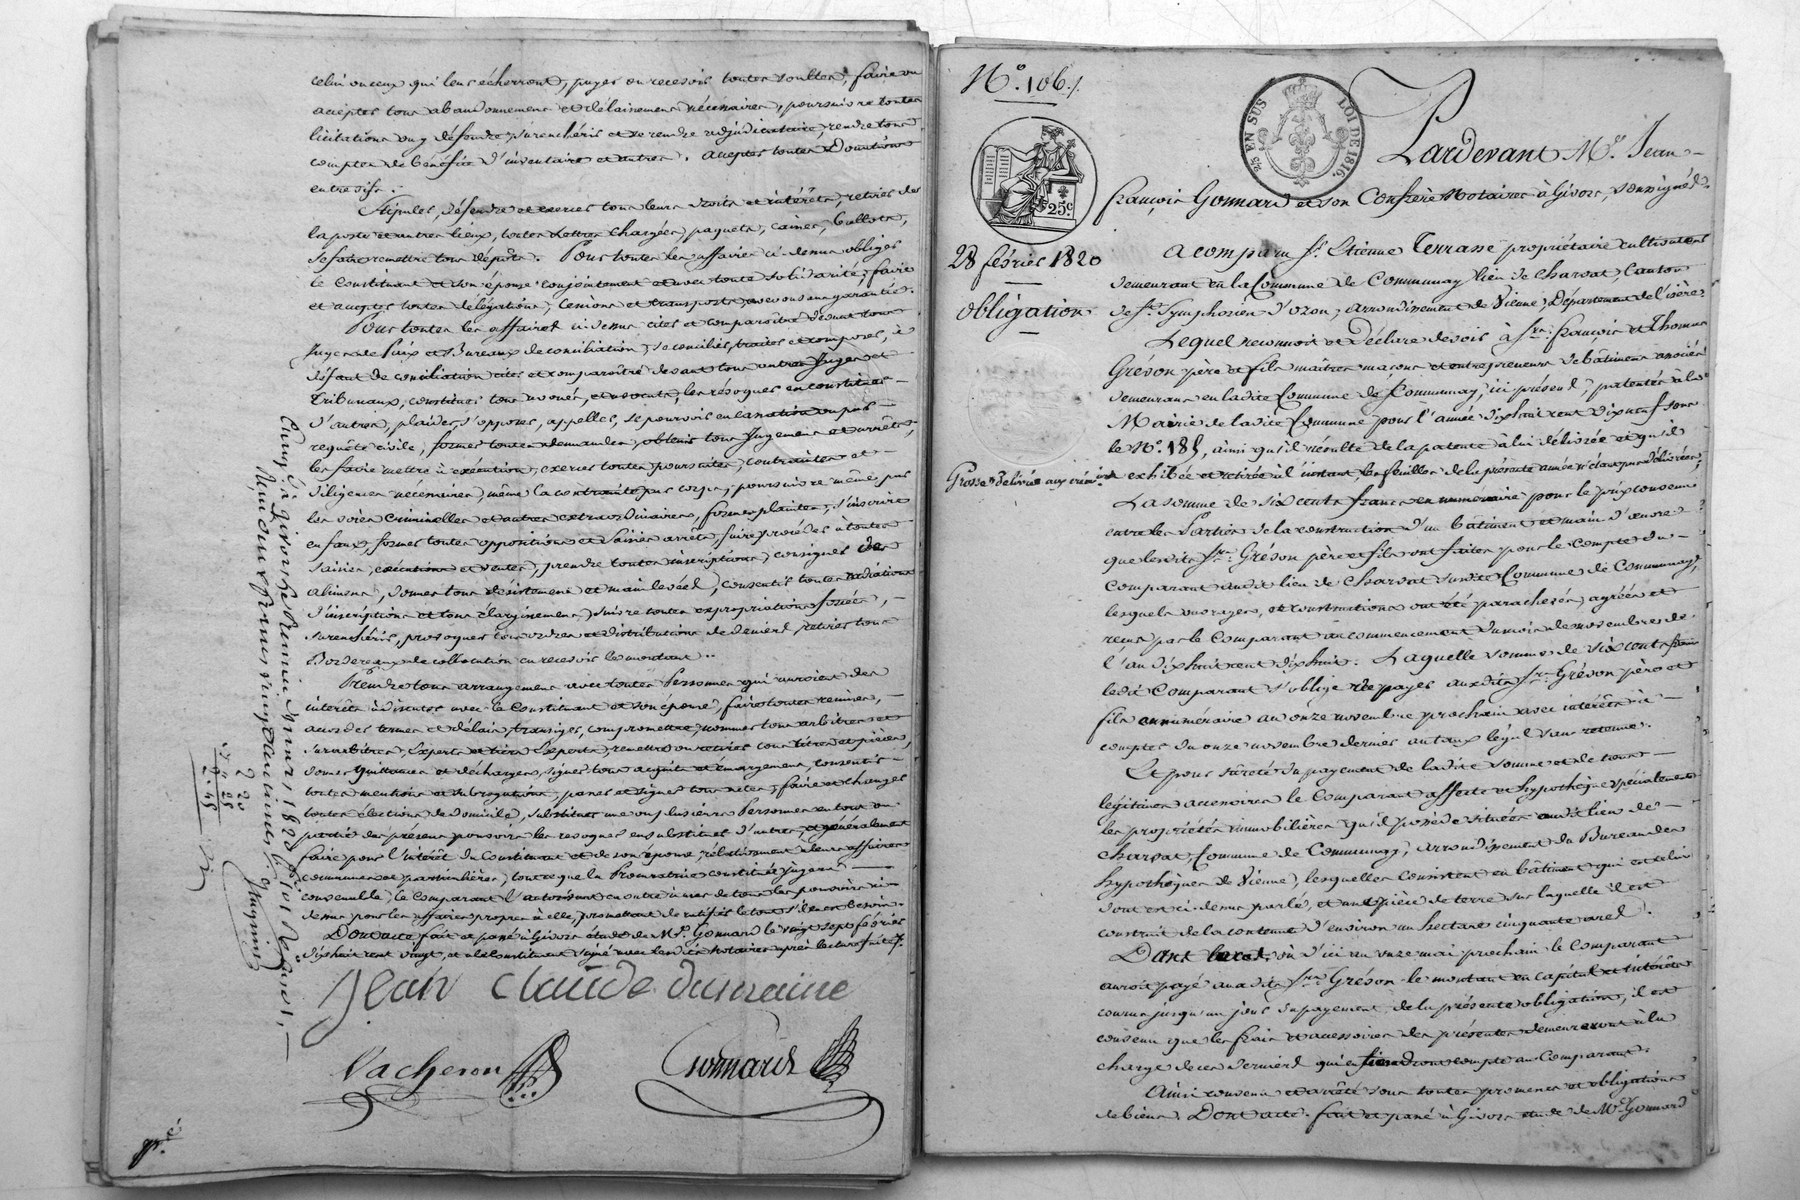 celui ou ceux qui leur écherront, payer ou recevoir toutes soultes, faire ou
accepter tous abandonnements et délaissements nécessaires, poursuivre toutes
licitations ou y défendre, surenchérir et se rendre adjudicataire, rendre tous
comptes de bénéfice d'inventaire et autres. accepter toutes Donations
entre vifs.
Stipuler, défendre et exercer tous leurs droits et intérêts, retirer de
la poste et autres lieux, toutes Lettres chargées, paquets, caisses, ballots,
se faire remettre tous dépôts. Pour toutes les affaires ci-dessus obliger
le Constituant et son épouse conjointement et avec toute solidarité, faire
et accepter toutes délégations, cessions et transports avec ou sans garantie.
Pour toutes les affaires ci-dessus citer et comparoître devant tous
Juges de Paix et Bureaux de conciliation, se concilier, traiter et composer, à
défaut de conciliation citer et comparoître devant tous autres Juges et
Tribunaux, constituer tous avoués, et avocats, les révoquer en constituer
d'autres, plaider, s'opposer, appeller, se pourvoir en cassation ou par
requête civile, former toutes demandes, obtenir tous Jugements et arrêts,
les faire mettre à exécution, exercer toutes poursuites, contraintes et
diligences nécessaires, même la contrainte par corps, poursuivre même par
les voies criminelles et autres extraordinaires, former plaintes, s'inscrire
en faux, former toutes oppositions et saisies arrêts, faire procéder à toutes
saisies, exécutions et ventes, prendre toutes inscriptions, consigner des
alimens, donner tous désistement et main levées, consentir toutes radiations
d'inscriptions et tous élargissemens, suivre toutes expropriations forcées,
surenchérir, provoquer tous ordres et distributions de deniers, retirer tous
Bordereaux de collocation en recevoir le montant.
Prendre tous arrangemens avec toutes Personnes qui auroient des
intérêts à discuter avec le Constituant et son épouse, faire toutes remises,
accorder termes et délais, transiger, compromettre, nommer tous arbitres et
surarbitres, Experts et tiers Experts, remettre ou retirer tous titres et pièces,
donner quittances et décharges, signer tous acquits et émargemens, consentir
toutes mentions et subrogations, passer et signer tous actes, faire et changer
toutes élections de domicile, substituer une ou plusieurs Personnes en tout ou
partie des présens pouvoirs les révoquer en substituer d'autres, et généralement
faire pour l'intérêt du Constituant et de son épouse, relativement à leurs affaires
communes et particulières, tout ce que la Procuratrice constituée jugera
convenable, le Comparant l'autorisant en outre à user de tous les pouvoirs ci-
dessus pour les affaires propres à elle, promettant de ratifier le tout s'il en est besoin.
Dont acte fait et passé à Givors étude de Me. Gonnard le vingt sept février
dix huit cent vingt, et a le Constituant signé avec lesdits Notaires après lecture faite.
Jean Claude dumaine
Vacheron Gonnard
Enreg. à Givors le
2 20
22
2.42
No. 106.
25 EN SUS
LOI DE 1816.
25c
28 février 1820
obligation
Grosse délivrée aux créanciers
Pardevant Me. Jean
françois Gonnard et son Confrère Notaires à Givors, soussignés.
a comparu Sr. Etienne Terrasse propriétaire cultivateur
demeurant en la Commune de Communay lieu de Charvas, Canton
de St. Symphorien d'ozon, arrondissement de Vienne, Département de l'isère.
Lequel reconnoit et Déclare devoir à Srs. françois et Thomas
Gréson père et fils maîtres maçons et entrepreneurs de bâtimens associés
demeurans en la dite Commune de Communay, ici présens, patentés à la
Mairie de la dite Commune pour l'année dix huit cent dix neuf sous
le No. 185, ainsi qu'il résulte de la patente à lui délivrée et qu'il
a exhibée et retirée à l'instant, les feuilles de la présente année n'étant pas délivrées,
La somme de six cents francs en numéraire pour le prix convenu
entre les Parties de la construction d'un bâtiment et main d'œuvre
que lesdits Srs. Gréson père et fils ont faites pour le compte du
Comparant audit lieu de Charvas susdite Commune de Communay,
lesquels ouvrages, et constructions ont été parachevés, agréés et
reçus par le Comparant au commencement du mois de novembre de
l'an dix huit cent dix huit. Laquelle somme de six cents francs
ledit Comparant s'oblige de payer auxdits Srs. Gréson père et
fils en numéraire au onze novembre prochain avec intérêts à
compter du onze novembre dernier au taux légal sans retenue.
Et pour sûreté du payement de la dite somme et de tous
légitimes accessoires le Comparant affecte et hypothèque spécialement
les propriétés immobilières qu'il possède situées audit lieu de
Charvas, Commune de Communay, arrondissement du Bureau des
hypothèques de Vienne, lesquelles consistent en bâtiment qui est celui
dont est ci-dessus parlé, et une pièce de terre sur laquelle il est
construit de la contenue d'environ un hectare cinquante ares.
Dans le cas où d'ici au onze mai prochain le Comparant
auroit payé auxdits Srs. Gréson le montant en capital et intérêts
courus jusqu'au jour du payement de la présente obligation, il est
convenu que les frais et accessoires des présentes demeureront à la
charge de ces derniers qui en tiendront compte au Comparant.
Ainsi convenu et arrêté sous toutes promesses et obligations
de biens. Dont acte. fait et passé à Givors étude de Me. Gonnard